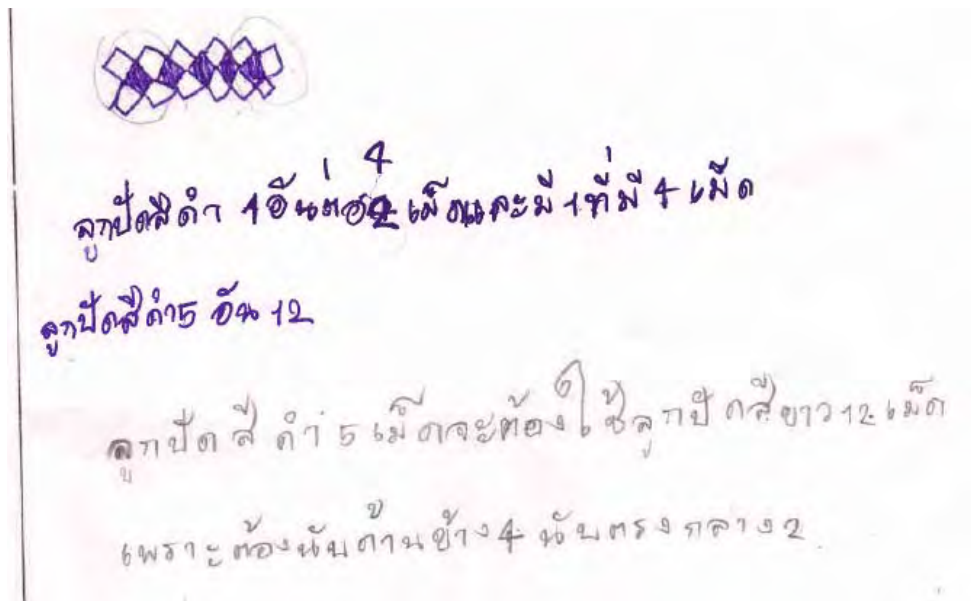 ลูกปัดสีดำ 1 อันต่อ 4 เม็ดและมี 1 ที่มี 4 เม็ด
ลูกปัดสีดำ 5 อัน 12
ลูกปัดสีดำ 5 เม็ดจะต้องใช้ลูกปัดสีขาว 12 เม็ด
เพราะต้องนับด้านข้าง 4 นับตรงกลาง 2